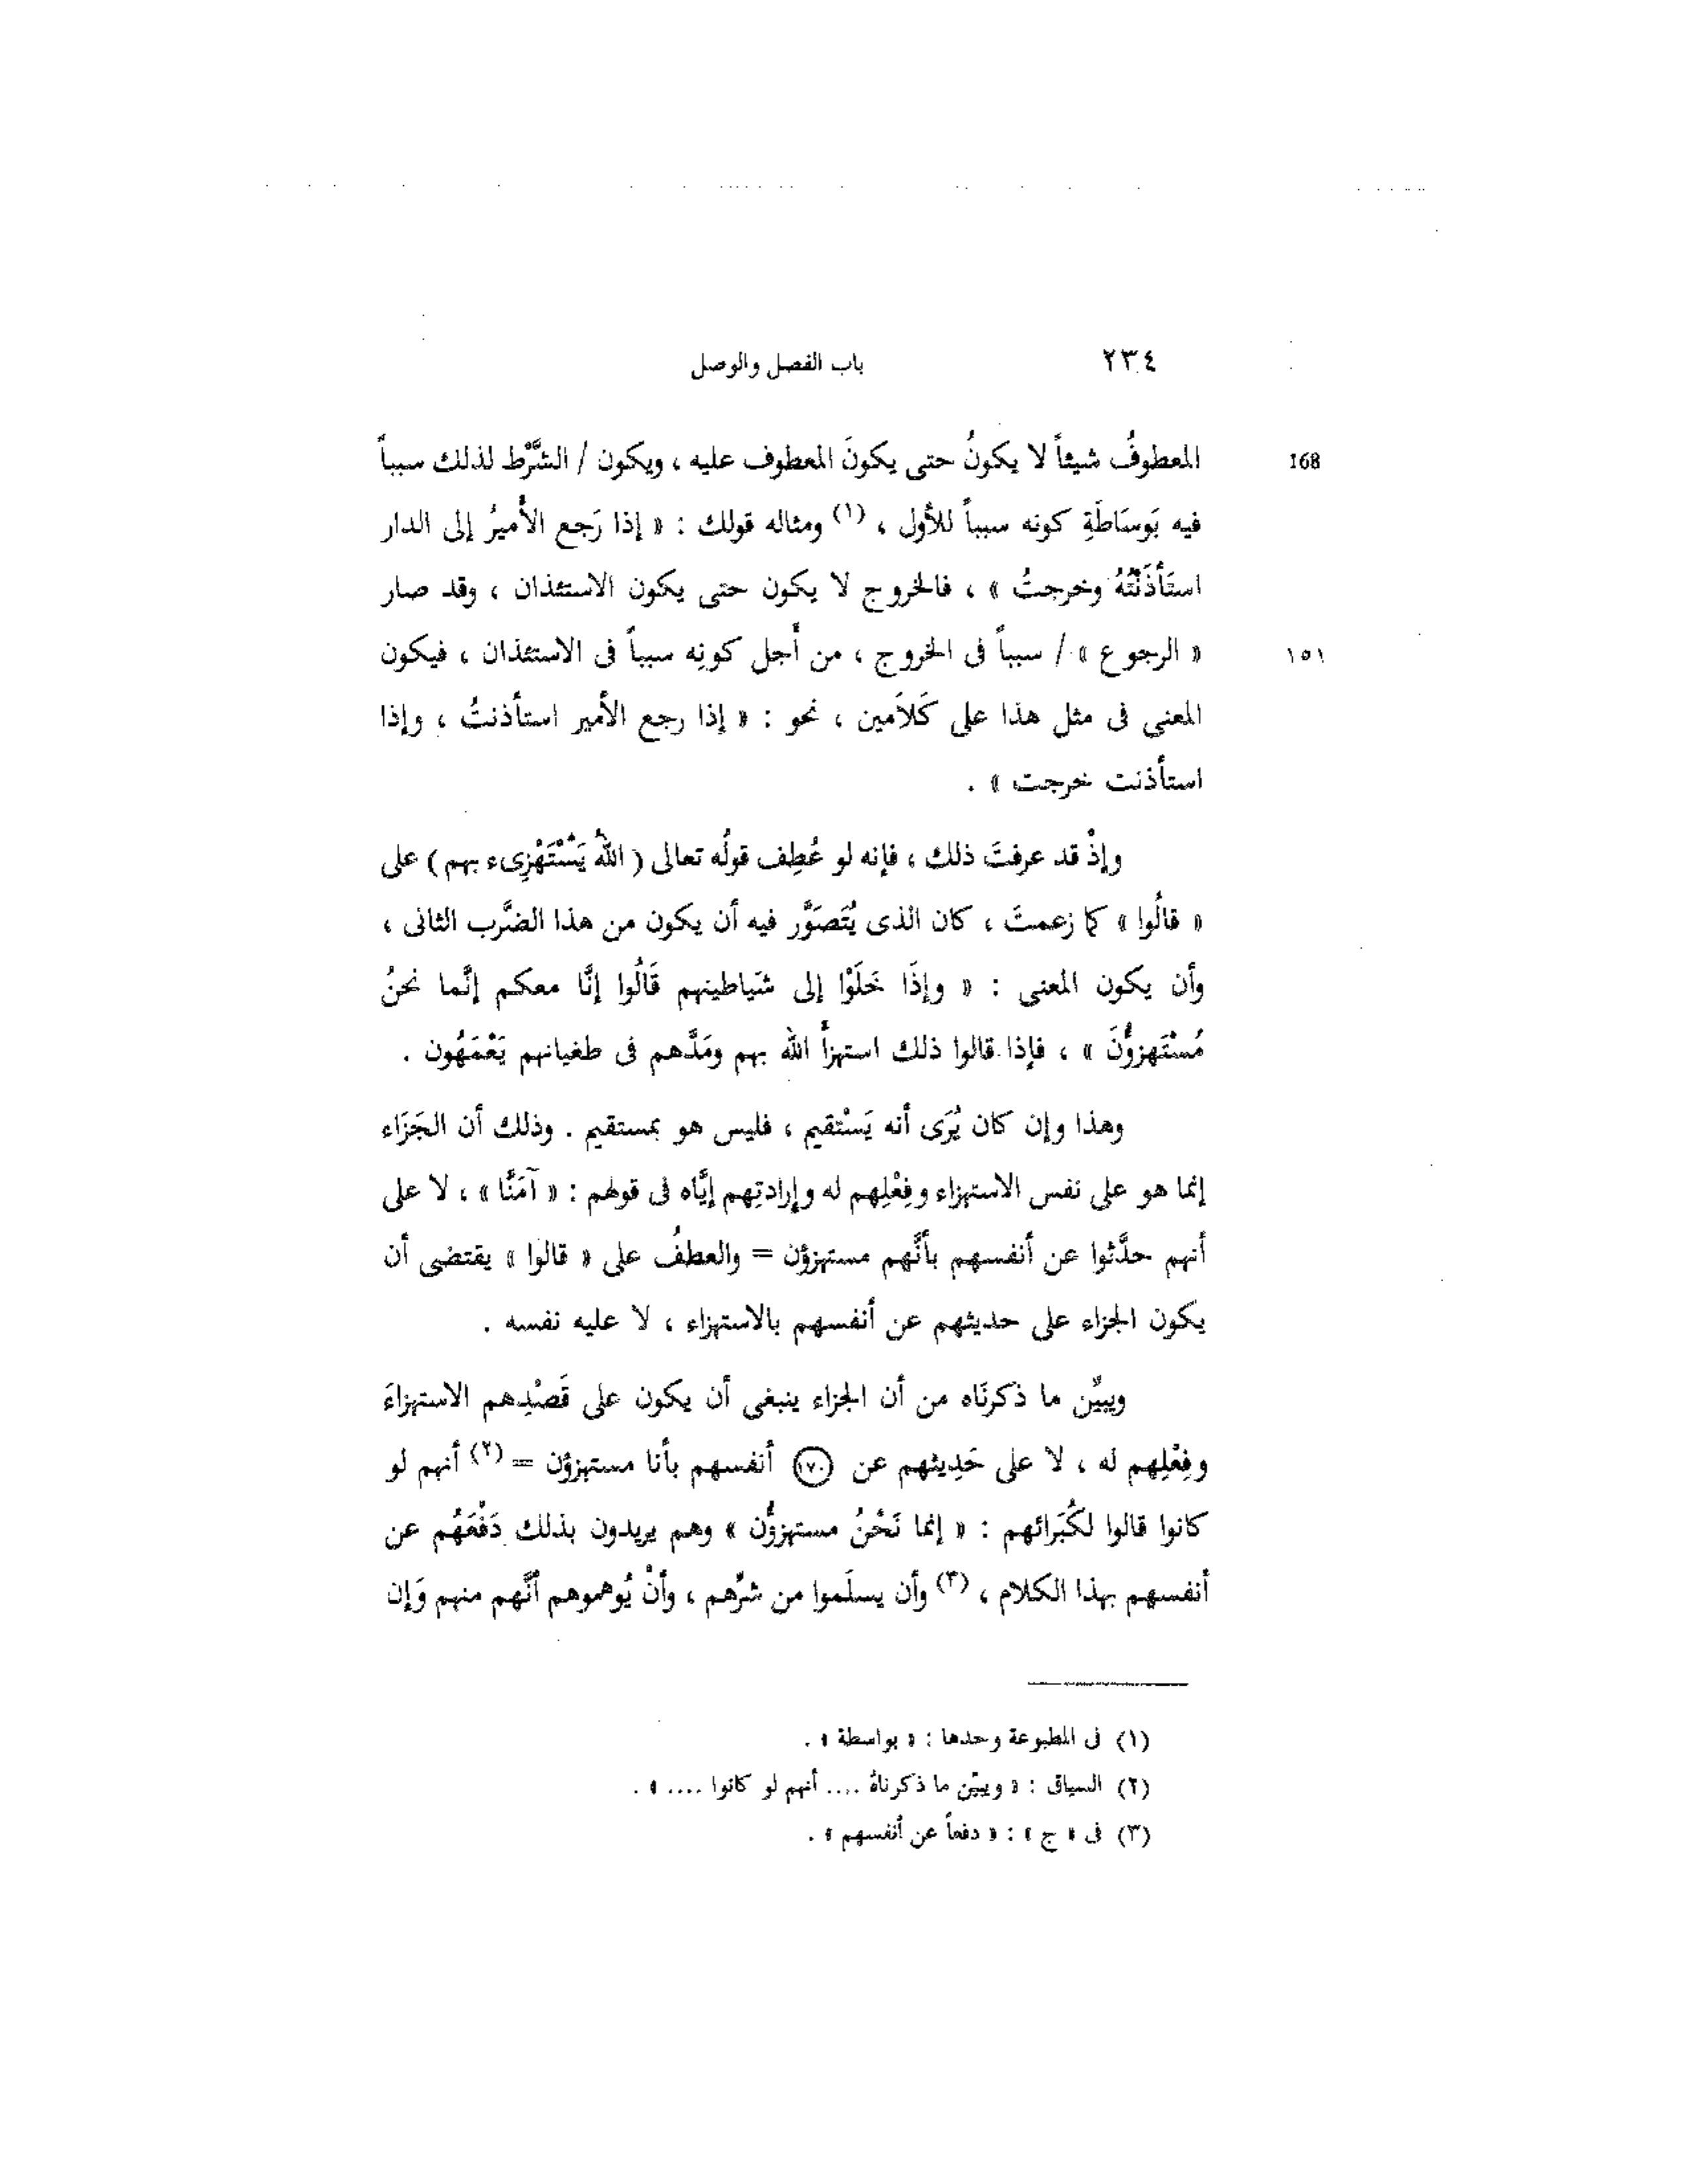 ٢٣٤ باب الفصل والوصل
168 المعطوفُ شيئاً لا يكونُ حتى يكونَ المعطوف عليه ، ويكون / الشَّرْط لذلك سبباً
فيه بَوسَاطَةِ كونه سبباً للأول ، (١) ومثاله قولك : « إذا رَجع الأميرُ إلى الدار
استَأذَنْتُهُ وخرجتُ » ، فالخروج لا يكون حتى يكون الاستئذان ، وقد صار
١٥١ « الرجوع » / سبباً فى الخروج ، من أجل كونِه سبباً فى الاستئذان ، فيكون
المعنى فى مثل هذا على كَلاَمين ، نحو : « إذا رجع الأمير استأذنتُ ، وإذا
استأذنت خرجت » .
وإذْ قد عرفتَ ذلك ، فإنه لو عُطِف قولُه تعالى ( اللهُ يَسْتَهْزِىء بهم ) على
« قالُوا » كما زعمتَ ، كان الذى يُتَصَوَّر فيه أن يكون من هذا الضَّرب الثانى ،
وأن يكون المعنى : « وإذَا خَلَوْا إلى شَياطينهم قَالُوا إنَّا معكم إنَّما نحنُ
مُسْتَهزؤُنَ » ، فإذا قالوا ذلك استهزأَ الله بهم ومَدَّهم فى طغيانهم يَعْمَهُون .
وهذا وإن كان يُرَى أنه يَسْتقيم ، فليس هو بمستقيم . وذلك أن الجَزَاء
إنما هو على نفس الاستهزاء وفِعْلِهم له وإرادتِهم إيَّاه فى قولهم : « آمَنَّا » ، لا على
أنهم حدَّثوا عن أنفسهم بأنَّهم مستهزؤن = والعطفُ على « قالوا » يقتضى أن
يكون الجزاء على حديثهم عن أنفسهم بالاستهزاء ، لا عليه نفسه .
ويبيِّن ما ذكرنَاه من أن الجزاء ينبغى أن يكون على قَصْدِهم الاستهزاءَ
وفِعْلِهم له ، لا على حَدِيثهم عن ١٧٠ أنفسهم بأنا مستهزؤن = (٢) أنهم لو
كانوا قالوا لكُبَرائهم : « إنما نَحْنُ مستهزؤُن » وهم يريدون بذلك دَفْعَهُم عن
أنفسهم بهذا الكلام ، (٣) وأن يسلَموا من شرِّهم ، وأنْ يُوهموهم أنَّهم منهم وَإن
(١) فى المطبوعة وحدها : « بواسطة » .
(٢) السياق : « ويبيّن ما ذكرناهُ .... أنهم لو كانوا .... » .
(٣) فى « ج » : « دفعاً عن أنفسهم » .